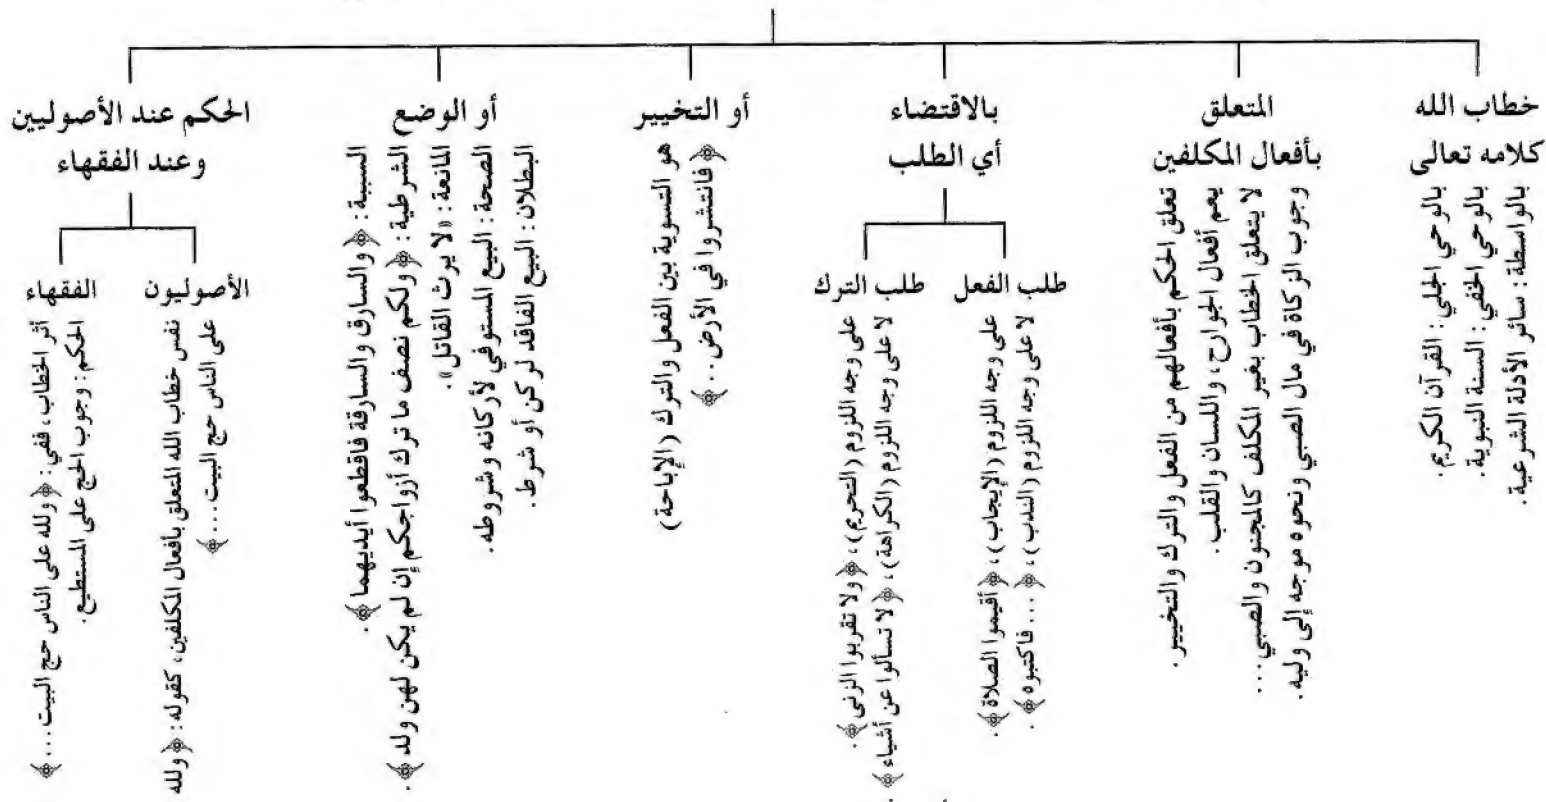 خطاب الله
كلامه تعالى
بالوحي الجلي: القرآن الكريم.
بالوحي الخفي: السنة النبوية.
بالواسطة: سائر الأدلة الشرعية.
المتعلق
بأفعال المكلفين
تعلق الحكم بأفعالهم من الفعل والترك والتخيير.
يعم أفعال الجوارح، واللسان والقلب.
لا يتعلق الخطاب بغير المكلف كالمجنون والصبي...
وجوب الزكاة في مال الصبي ونحوه موجه إلى وليه.
بالاقتضاء
أي الطلب
طلب الفعل
على وجه اللزوم (الإيجاب)، ﴿أقيموا الصلاة﴾.
لا على وجه اللزوم (الندب)، ﴿... فاكتبوه﴾.
طلب الترك
على وجه اللزوم (التحريم)، ﴿ولا تقربوا الزنى﴾.
لا على وجه اللزوم (الكراهة)، ﴿لا تسألوا عن أشياء﴾.
أو التخيير
هو التسوية بين الفعل والترك (الإباحة)
﴿فانتشروا في الأرض...﴾
أو الوضع
السببية: ﴿والسارق والسارقة فاقطعوا أيديهما﴾.
الشرطية: ﴿ولكم نصف ما ترك أزواجكم إن لم يكن لهن ولد﴾.
المانعة: «لا يرث القاتل».
الصحة: البيع المستوفي لأركانه وشروطه.
البطلان: البيع الفاقد لركن أو شرط.
الحكم عند الأصوليين
وعند الفقهاء
الأصوليون
نفس خطاب الله المتعلق بأفعال المكلفين، كقوله: ﴿ولله
على الناس حج البيت...﴾
الفقهاء
أثر الخطاب، ففي: ﴿ولله على الناس حج البيت...﴾
الحكم: وجوب الحج على المستطيع.